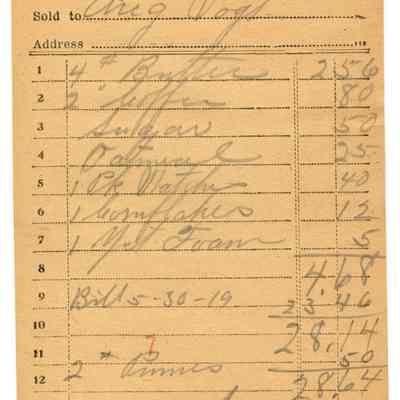 Sold to
Address
1 4 # Butter 2 56
2 2 " Coffee 80
3 Sugar 50
4 Oatmeal 25
5 1 Pk Matches 40
6 1 Cornflakes 12
7 1 Yeast Foam 5
8 4.68
9 Bill 5-30-19 23 46
10 28.14
11 2 # Prunes 50
12 28 64